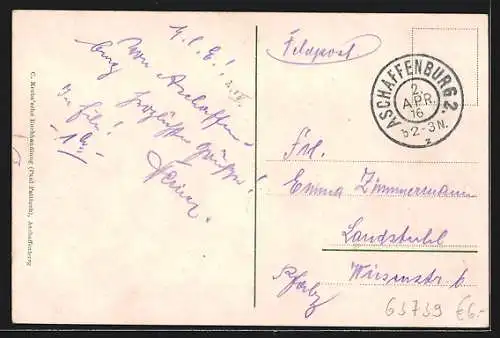 L. E.!
2. IV.
Von Aschaffen-
burg
herzlichste Grüsse!
Heinz.
In File!
C. Krebs'sche Buchhandlung (Paul Pattloch), Aschaffenburg
Feldpost
ASCHAFFENBURG 2.
2.
APR.
16
2-3N.
z
Frl.
Emma Zimmermann
Landstuhl
Wiesenstr. 6
Pfalz
63739 €6.-